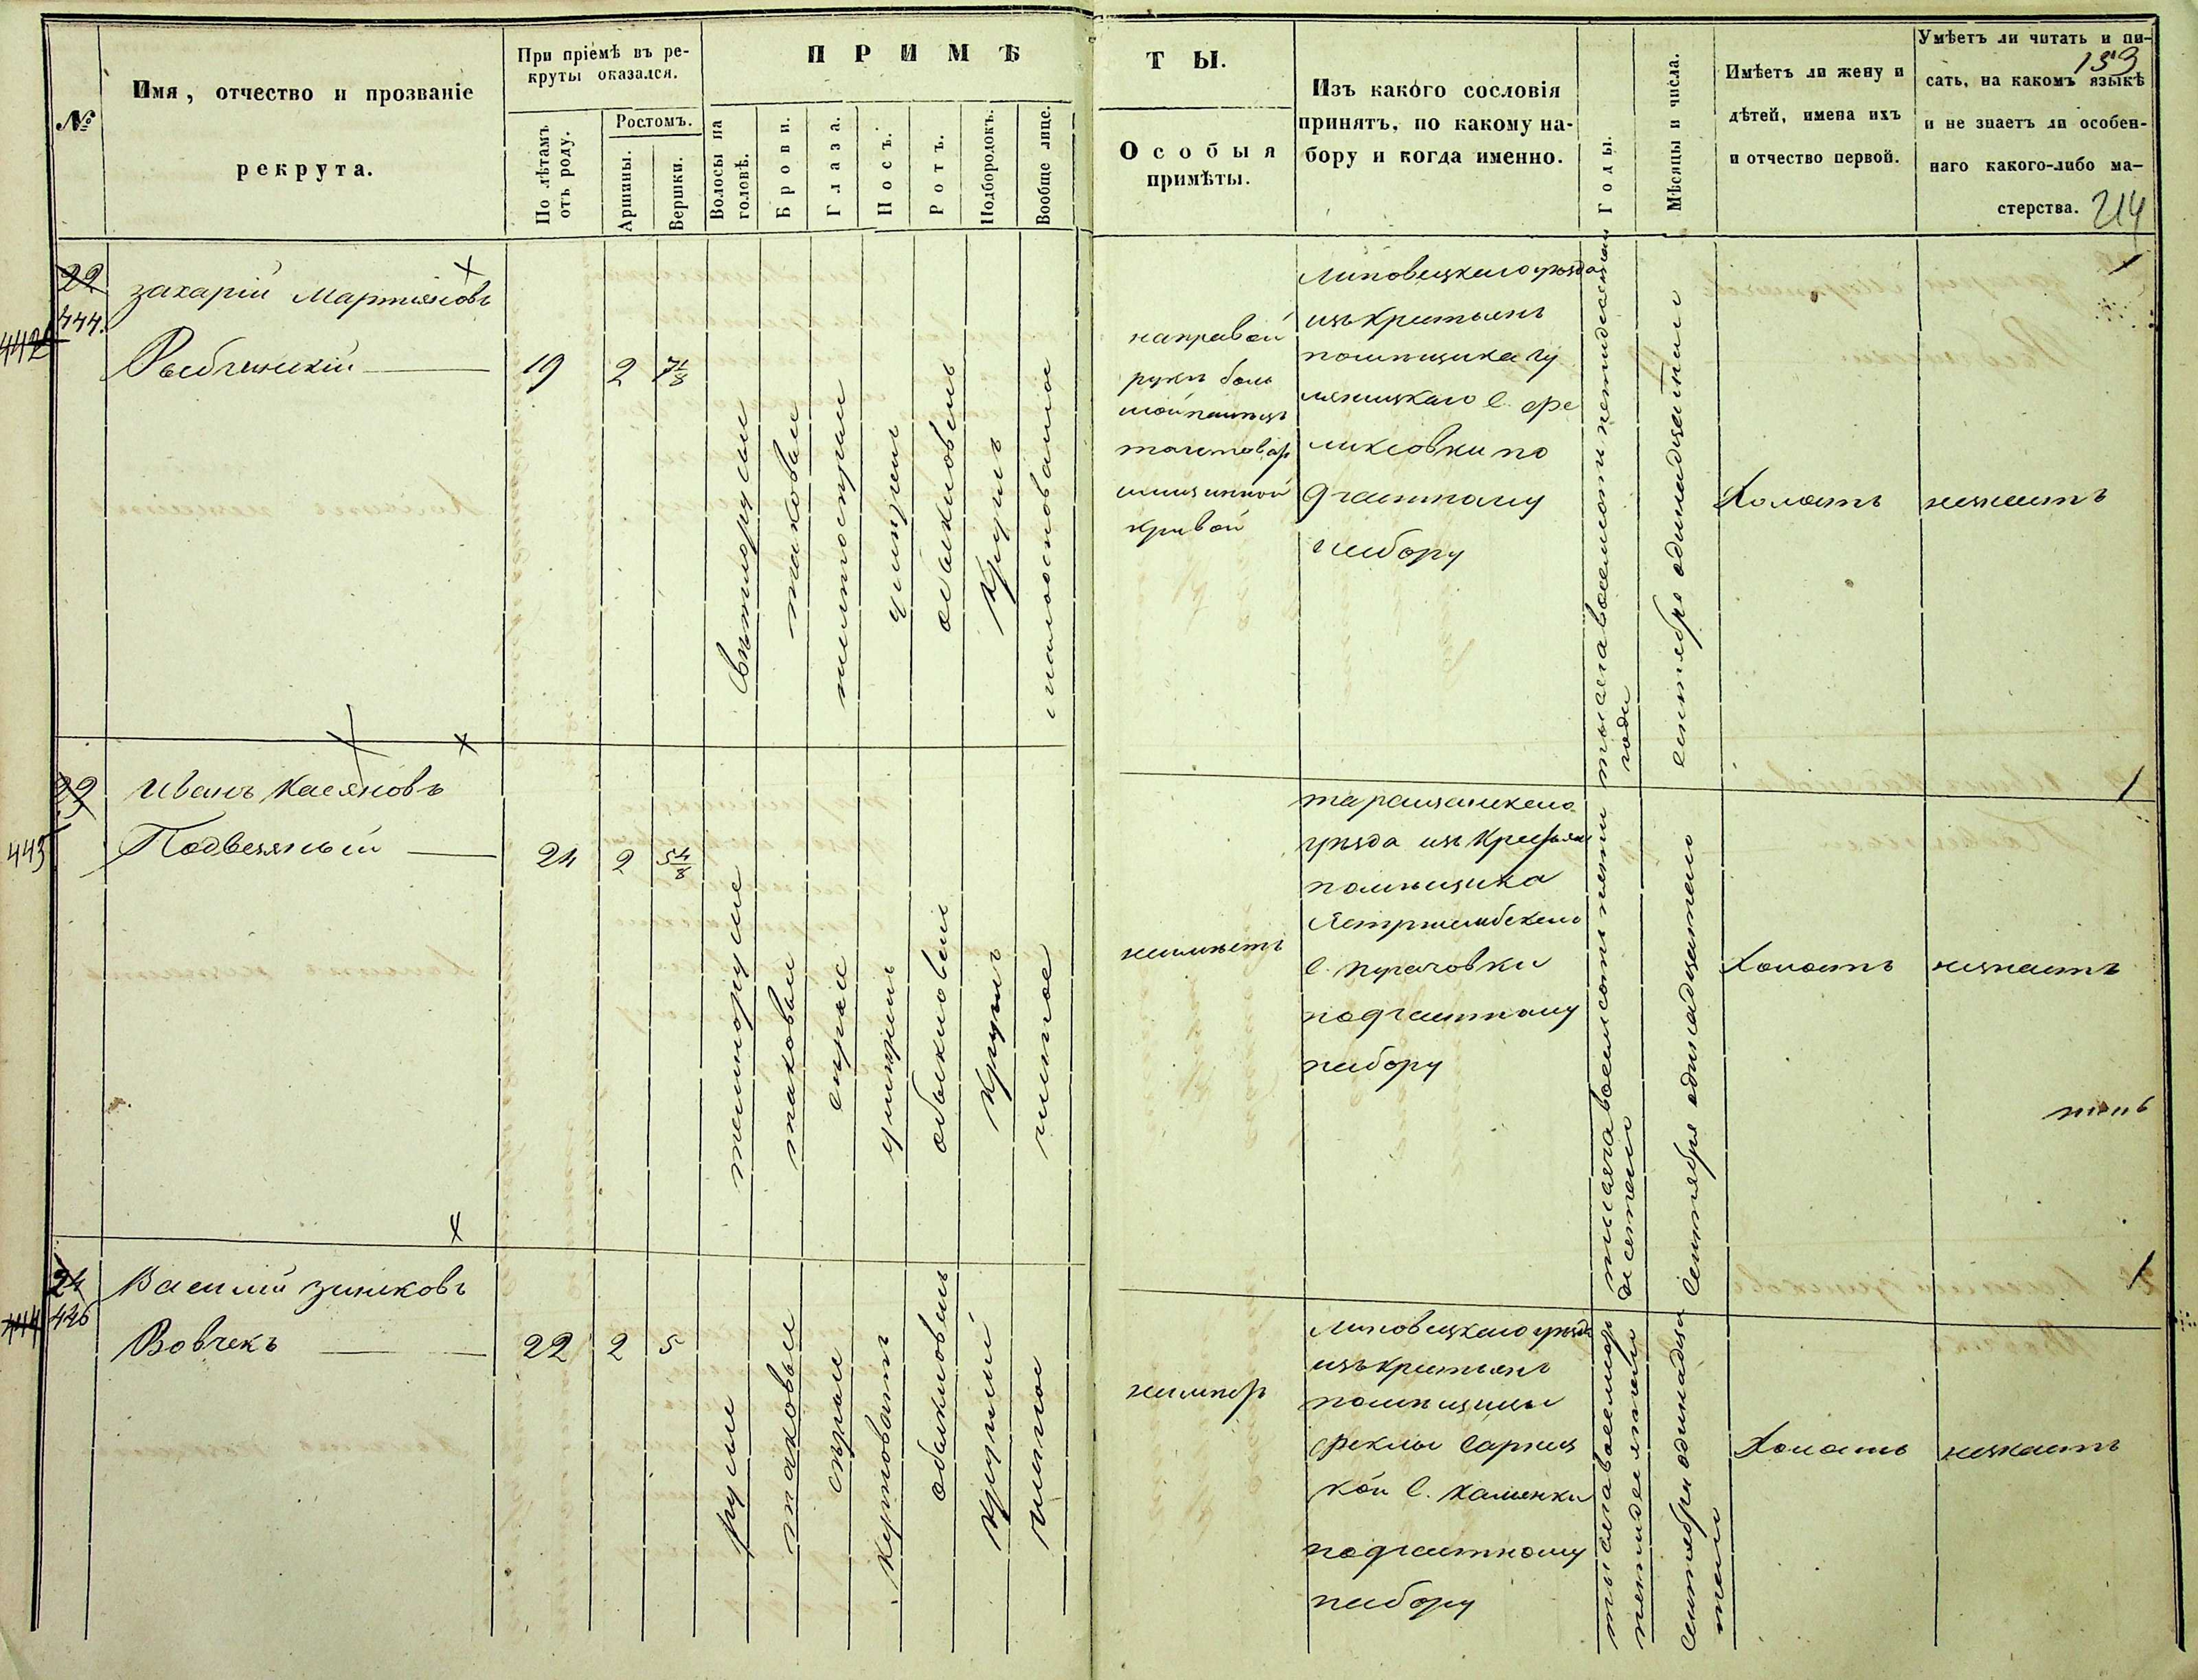 №
Имя, отчество и прозваніе
рекрута.
При пріемѣ въ ре-
круты оказался.
По лѣтамъ
отъ роду.
Ростомъ.
Аршины.
Вершки.
ПРИМѢ
Волосы на
головѣ.
Брови.
Глаза.
Носъ.
Ротъ.
Подбородокъ.
Вообще лице.
ТЫ.
Особыя
примѣты.
Изъ какого сословія
принятъ, по какому на-
бору и когда именно.
Годы.
Мѣсяцы и числа.
Имѣетъ ли жену и
дѣтей, имена ихъ
и отчество первой.
Умѣетъ ли читать и пи-
сать, на какомъ языкѣ
и не знаетъ ли особен-
наго какого-либо ма-
стерства.
159
214
22
444.
442
Захарій Мартиновъ
19
2
7 1/8
свѣтлорусыи
таковыи
желтосерыи
умѣрен
обыкновень
круглъ
направой
руки боль
шой палецъ
кривой
Липовецкаго уѣзда
изъ крестьянъ
помѣщика Гу
ликсовки по
9 частному
набору
тысяча восемсотъ петидесятаго
года
сентебре одинадцатаго
Холостъ
незнаетъ
23
443
Иванъ Касяновъ
Подвезяный
24
2
5 4/8
темнорусые
таковыи
серые
умѣрень
обыкновене
круглъ
чистое
неимѣетъ
таращанскаго
уѣзда изъ Крестьян
помѣщика
Ястржембскаго
С. Пугачовки
по 9 частному
набору
тысяча восемсотъ пети
десетаго
Сентебре одинадцатаго
Холостъ
незнаетъ
24
446
444
Василій Зинковъ
Вовчекъ
22
2
5
русы
таковыи
сѣрыи
обыкновень
круглый
чистое
Липовецкаго уѣзда
изъ крестьянъ
помѣщицы
Феклы Сарнец
кой С. Каменки
по 9 частному
набору
Сентебри одинадца
таго
Холостъ
незнаетъ